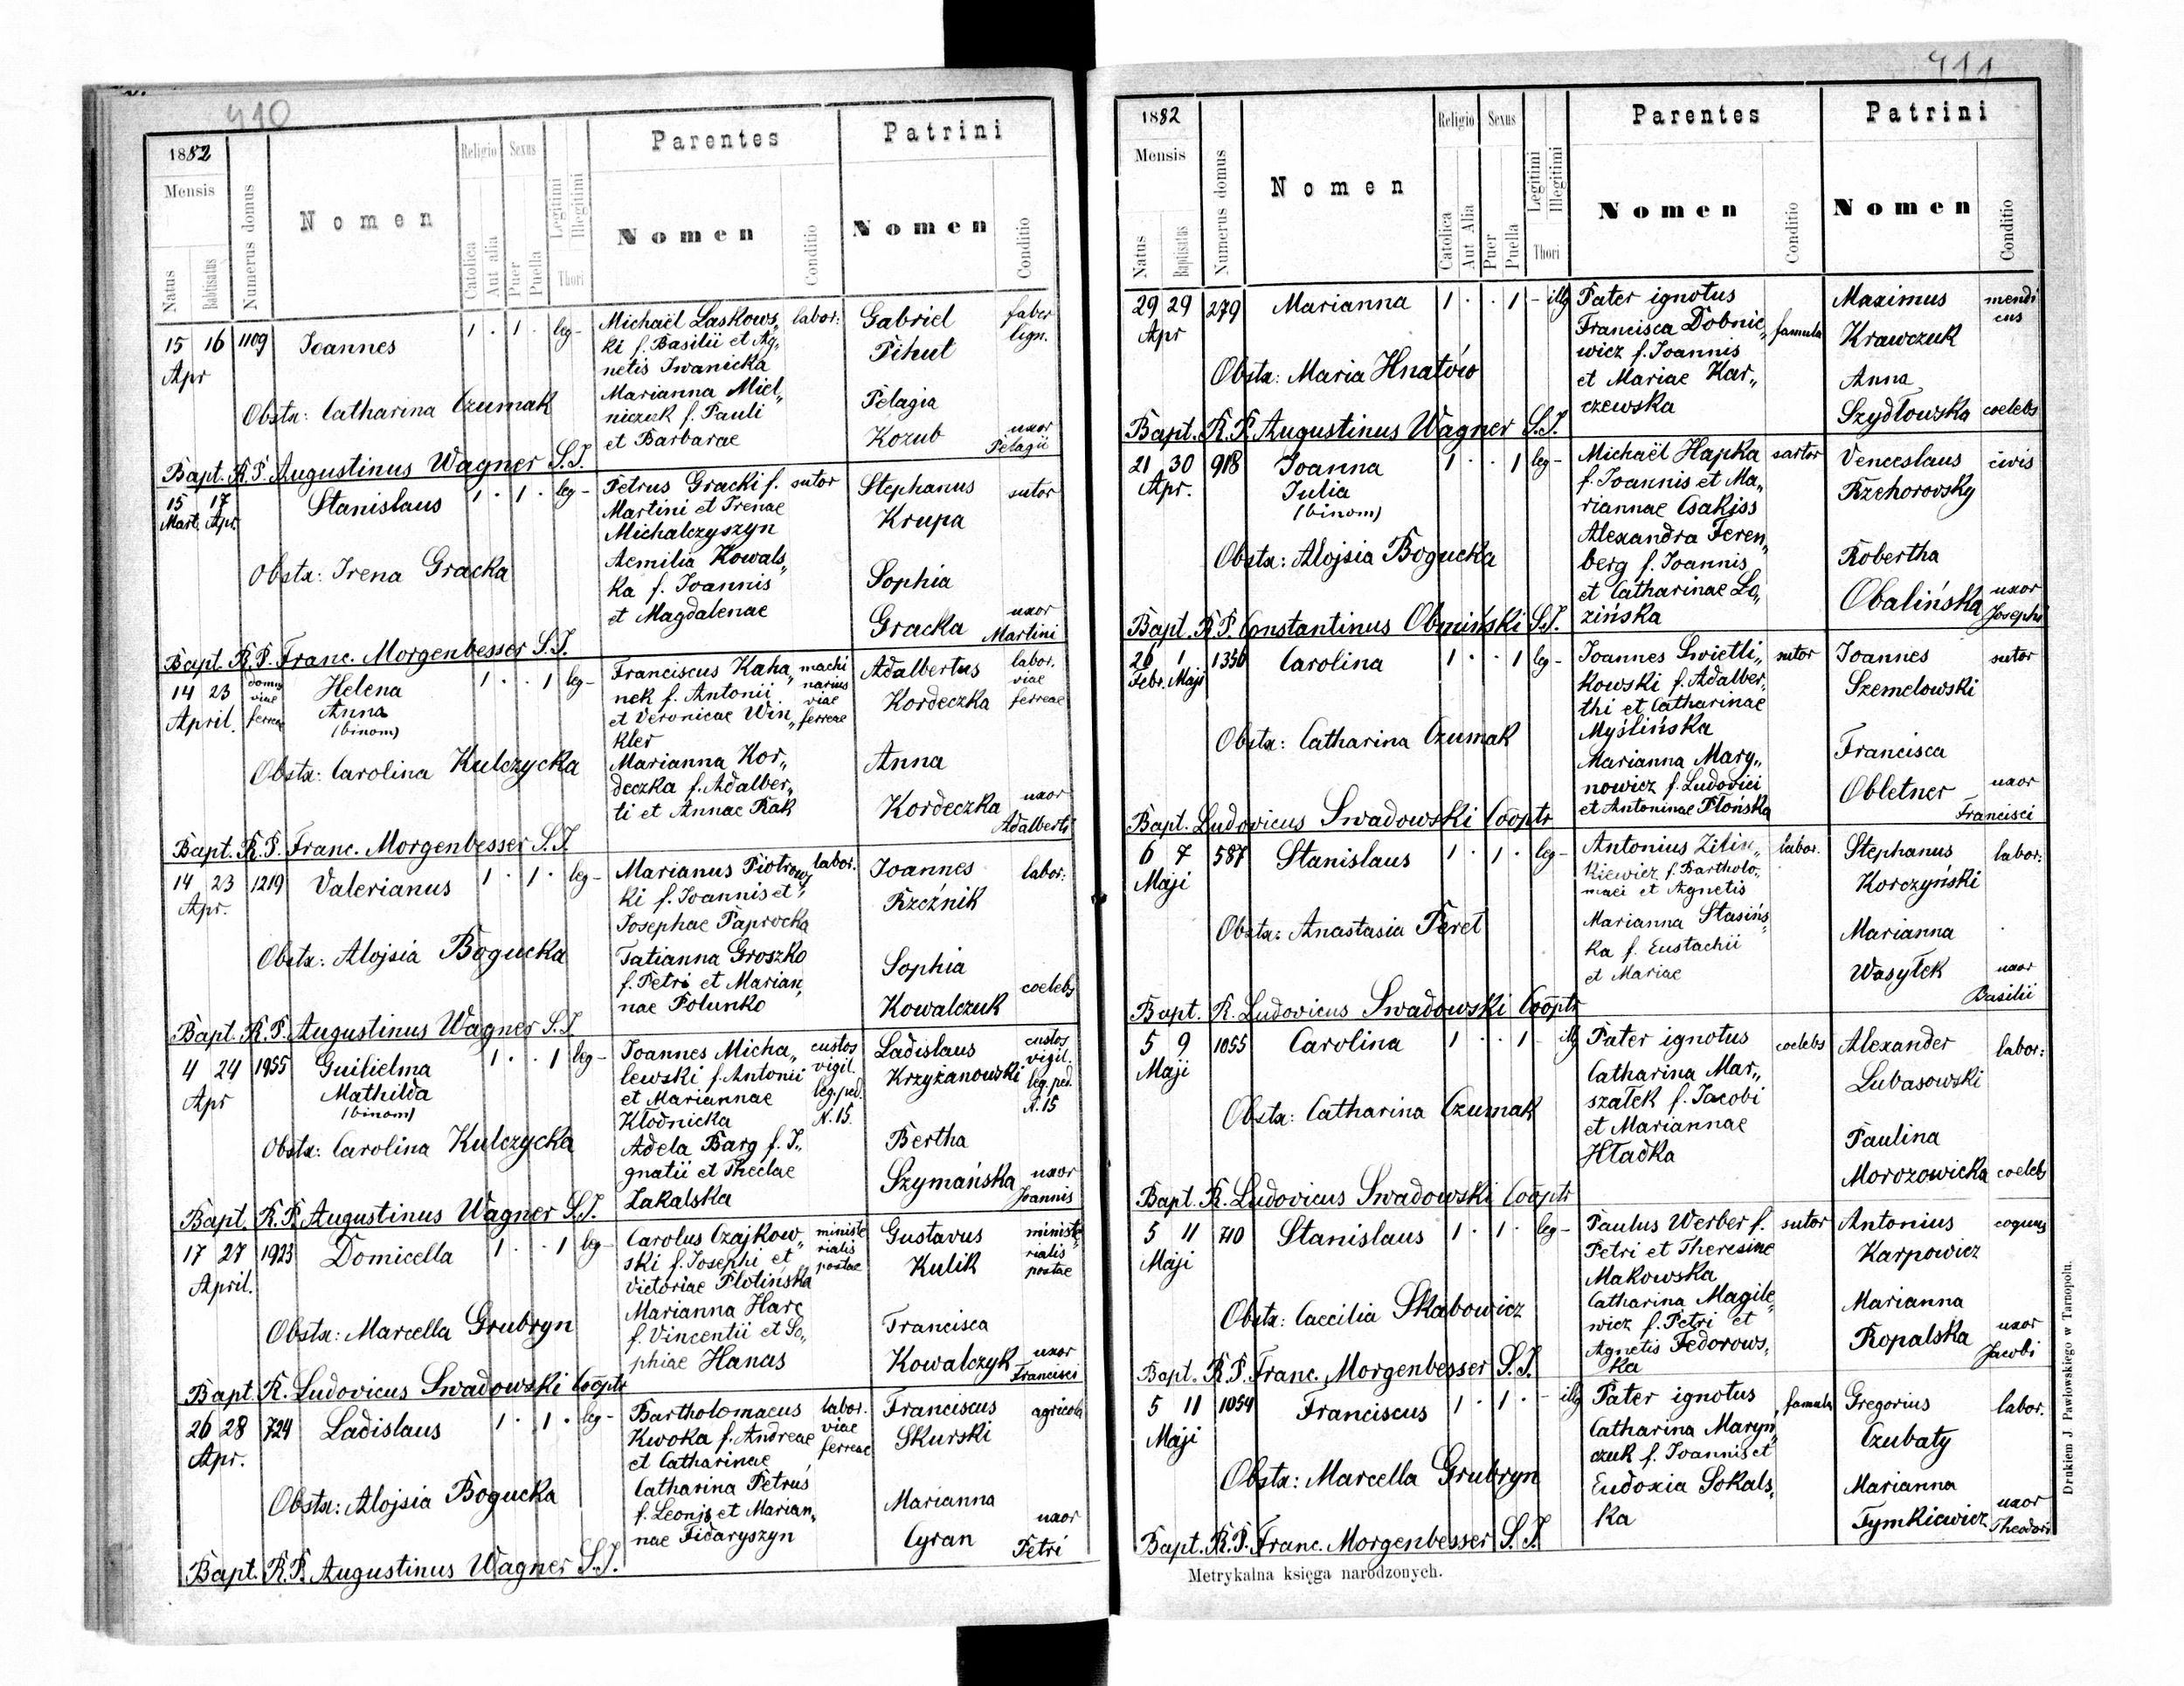 410
1882
Mensis
Natus
Babtisatus
Numerus domus
Nomen
Religio
Catolica
Aut alia
Sexus
Puer
Puella
Legitimi
Illegitimi
Thori
Parentes
Nomen
Conditio
Patrini
Nomen
Conditio
15 16 1109 Joannes 1 . 1 . leg- Michaël Laskows„ labor: Gabriel faber
Apr ki f. Basilii et Ag„ Pihut lign.
netis Iwanicka
Marianna Miel„ Pelagia
Obstx: Catharina Czumak niczuk f. Pauli Kozub uxor
et Barbarae Pelagii
Bapt. R.P. Augustinus Wagner S.J.
15 17 Stanislaus 1 . 1 . leg- Petrus Gracki f. sutor Stephanus sutor
Mart. Apr. Martini et Irenae Krupa
Michalczyszyn
Obstx: Irena Gracka Aemilia Kowals„ Sophia
ka f. Joannis Gracka uxor
et Magdalenae Martini
Bapt. R.P. Franc. Morgenbesser S.J.
14 23 domus Helena 1 . . 1 leg- Franciscus Kaha„ machi Adalbertus labor.
April. viae Anna nek f. Antonii narius Kordeczka viae
ferreae (binom) et Veronicae Win„ viae ferreae
kler ferreae
Obstx: Carolina Kulczycka Marianna Kor„ Anna
deczka f. Adalber„ Kordeczka uxor
ti et Annae Rak Adalberti
Bapt. R.P. Franc. Morgenbesser S.J.
14 23 1219 Valerianus 1 . 1 . leg- Marianus Piotrows labor. Joannes labor:
Apr. ki f. Joannis et Rzeźnik
Josephae Paprocka
Obstx: Alojsia Bogucka Tatianna Groszko Sophia
f. Petri et Marian„ Kowalczuk coelebs
nae Polunko
Bapt. R.P. Augustinus Wagner S.J.
4 24 1955 Guilielma 1 . . 1 leg- Joannes Micha„ custos Ladislaus custos
Apr Mathilda lewski f. Antonii vigil. Krzyżanowski vigil.
(binom) et Mariannae leg. ped. leg. ped.
Kłodnicka N. 15. N. 15
Obstx: Carolina Kulczycka Adela Barg f. I„ Bertha
gnatii et Theclae Szymańska uxor
Zakalska Joannis
Bapt. R.P. Augustinus Wagner S.J.
17 27 1923 Domicella 1 . . 1 leg- Carolus Czajkow„ ministe Gustavus ministe„
April. ski f. Josephi et rialis Kulik rialis
Victoriae Plotińska postae postae
Obstx: Marcella Grubryn Marianna Harc Francisca
f. Vincentii et So„ Kowalczyk uxor
phiae Hanas Francisci
Bapt. R. Ludovicus Swadowski Cooptr
26 28 724 Ladislaus 1 . 1 . leg- Bartholomaeus labor. Franciscus agricola
Apr. Kwoka f. Andreae viae Skurski
et Catharinae ferreae
Obstx: Alojsia Bogucka Catharina Petrus Marianna
f. Leonis et Marian„ Cyran uxor
nae Fidaryszyn Petri
Bapt. R.P. Augustinus Wagner S.J.
411
1882
Mensis
Natus
Baptisatus
Numerus domus
Nomen
Religio
Catolica
Aut Alia
Sexus
Puer
Puella
Legitimi
Illegitimi
Thori
Parentes
Nomen
Conditio
Patrini
Nomen
Conditio
29 29 279 Marianna 1 . . 1 - illg Pater ignotus Maximus mendi
Apr Francisca Dobnic„ famula Krawczuk cus
wicz f. Joannis
Obstx: Maria Hnatów et Mariae Kar„ Anna
czewska Szydłowska coelebs
Bapt. R.P. Augustinus Wagner S.J.
21 30 918 Joanna 1 . . 1 leg- Michaël Hapka sartor Venceslaus civis
Apr. Julia f. Joannis et Ma„ Rzehorovsky
(binom) riannae Csakiss
Obstx: Alojsia Bogucka Alexandra Feren„ Robertha
berg f. Joannis Obalińska uxor
et Catharinae Lo„ Josephi
zińska
Bapt. R.P. Constantinus Obmiński S.J.
26 1 1356 Carolina 1 . . 1 leg- Joannes Swietli„ sutor Joannes sutor
Febr. Maji kowski f. Adalber„ Szemelowski
thi et Catharinae
Obstx: Catharina Czumak Myślińska Francisca
Marianna Mary„ Obletner uxor
nowicz f. Ludovici Francisci
et Antoninae Płońska
Bapt. Ludovicus Swadowski Cooptr
6 7 587 Stanislaus 1 . 1 . leg- Antonius Zilin„ labor. Stephanus labor:
Maji kiewicz f. Bartholo„ Korczyński
maei et Agnetis
Obstx: Anastasia Peret Marianna Stasińs„ Marianna
ka f. Eustachii Wasyłek uxor
et Mariae Basilii
Bapt. R. Ludovicus Swadowski Cooptr
5 9 1055 Carolina 1 . . 1 - illg Pater ignotus coelebs Alexander labor:
Maji Catharina Mar„ Lubasowski
szałek f. Jacobi
Obstx: Catharina Czumak et Mariannae Paulina
Hładka Morozowicka coelebs
Bapt. R. Ludovicus Swadowski Cooptr
5 11 710 Stanislaus 1 . 1 . leg- Paulus Werber f. sutor Antonius coquus
Maji Petri et Theresiae Karpowicz
Makowska
Obstx: Caecilia Skabowicz Catharina Magile„ Marianna
wicz f. Petri et Ropalska uxor
Agnetis Fedorows„ Jacobi
ka
Bapt. R.P. Franc. Morgenbesser S.J.
5 11 1054 Franciscus 1 . 1 . - illg Pater ignotus famula Gregorius labor.
Maji Catharina Maryn„ Czubaty
czuk f. Joannis et
Obstx: Marcella Grubryn Eudoxia Sokals„ Marianna
ka Tymkiewicz uxor
Theodori
Bapt. R.P. Franc. Morgenbesser S.J.
Metrykalna księga narodzonych.
Drukiem J. Pawłowskiego w Tarnopolu.